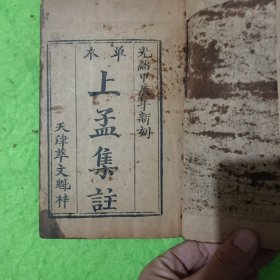 光緒甲辰年新刻
單本
上孟集註
天津萃文魁梓